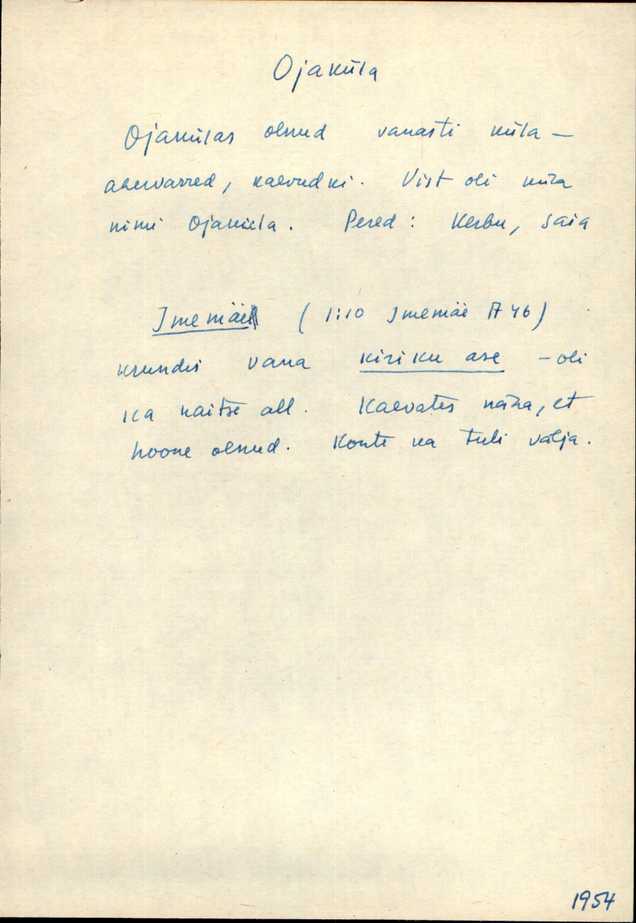 Ojaküla
Ojakülas olnud vanasti küla –
asevarred, kaevudki. Vist oli küla
nimi Ojaküla. Pered: Kerbu, Saia
Imemäe (1:10 Imemäe A 46)
krundis vana kiriku ase – oli
ka kaitse all. Kaevates näha, et
hoone olnud. Konte ka tuli välja.
1954